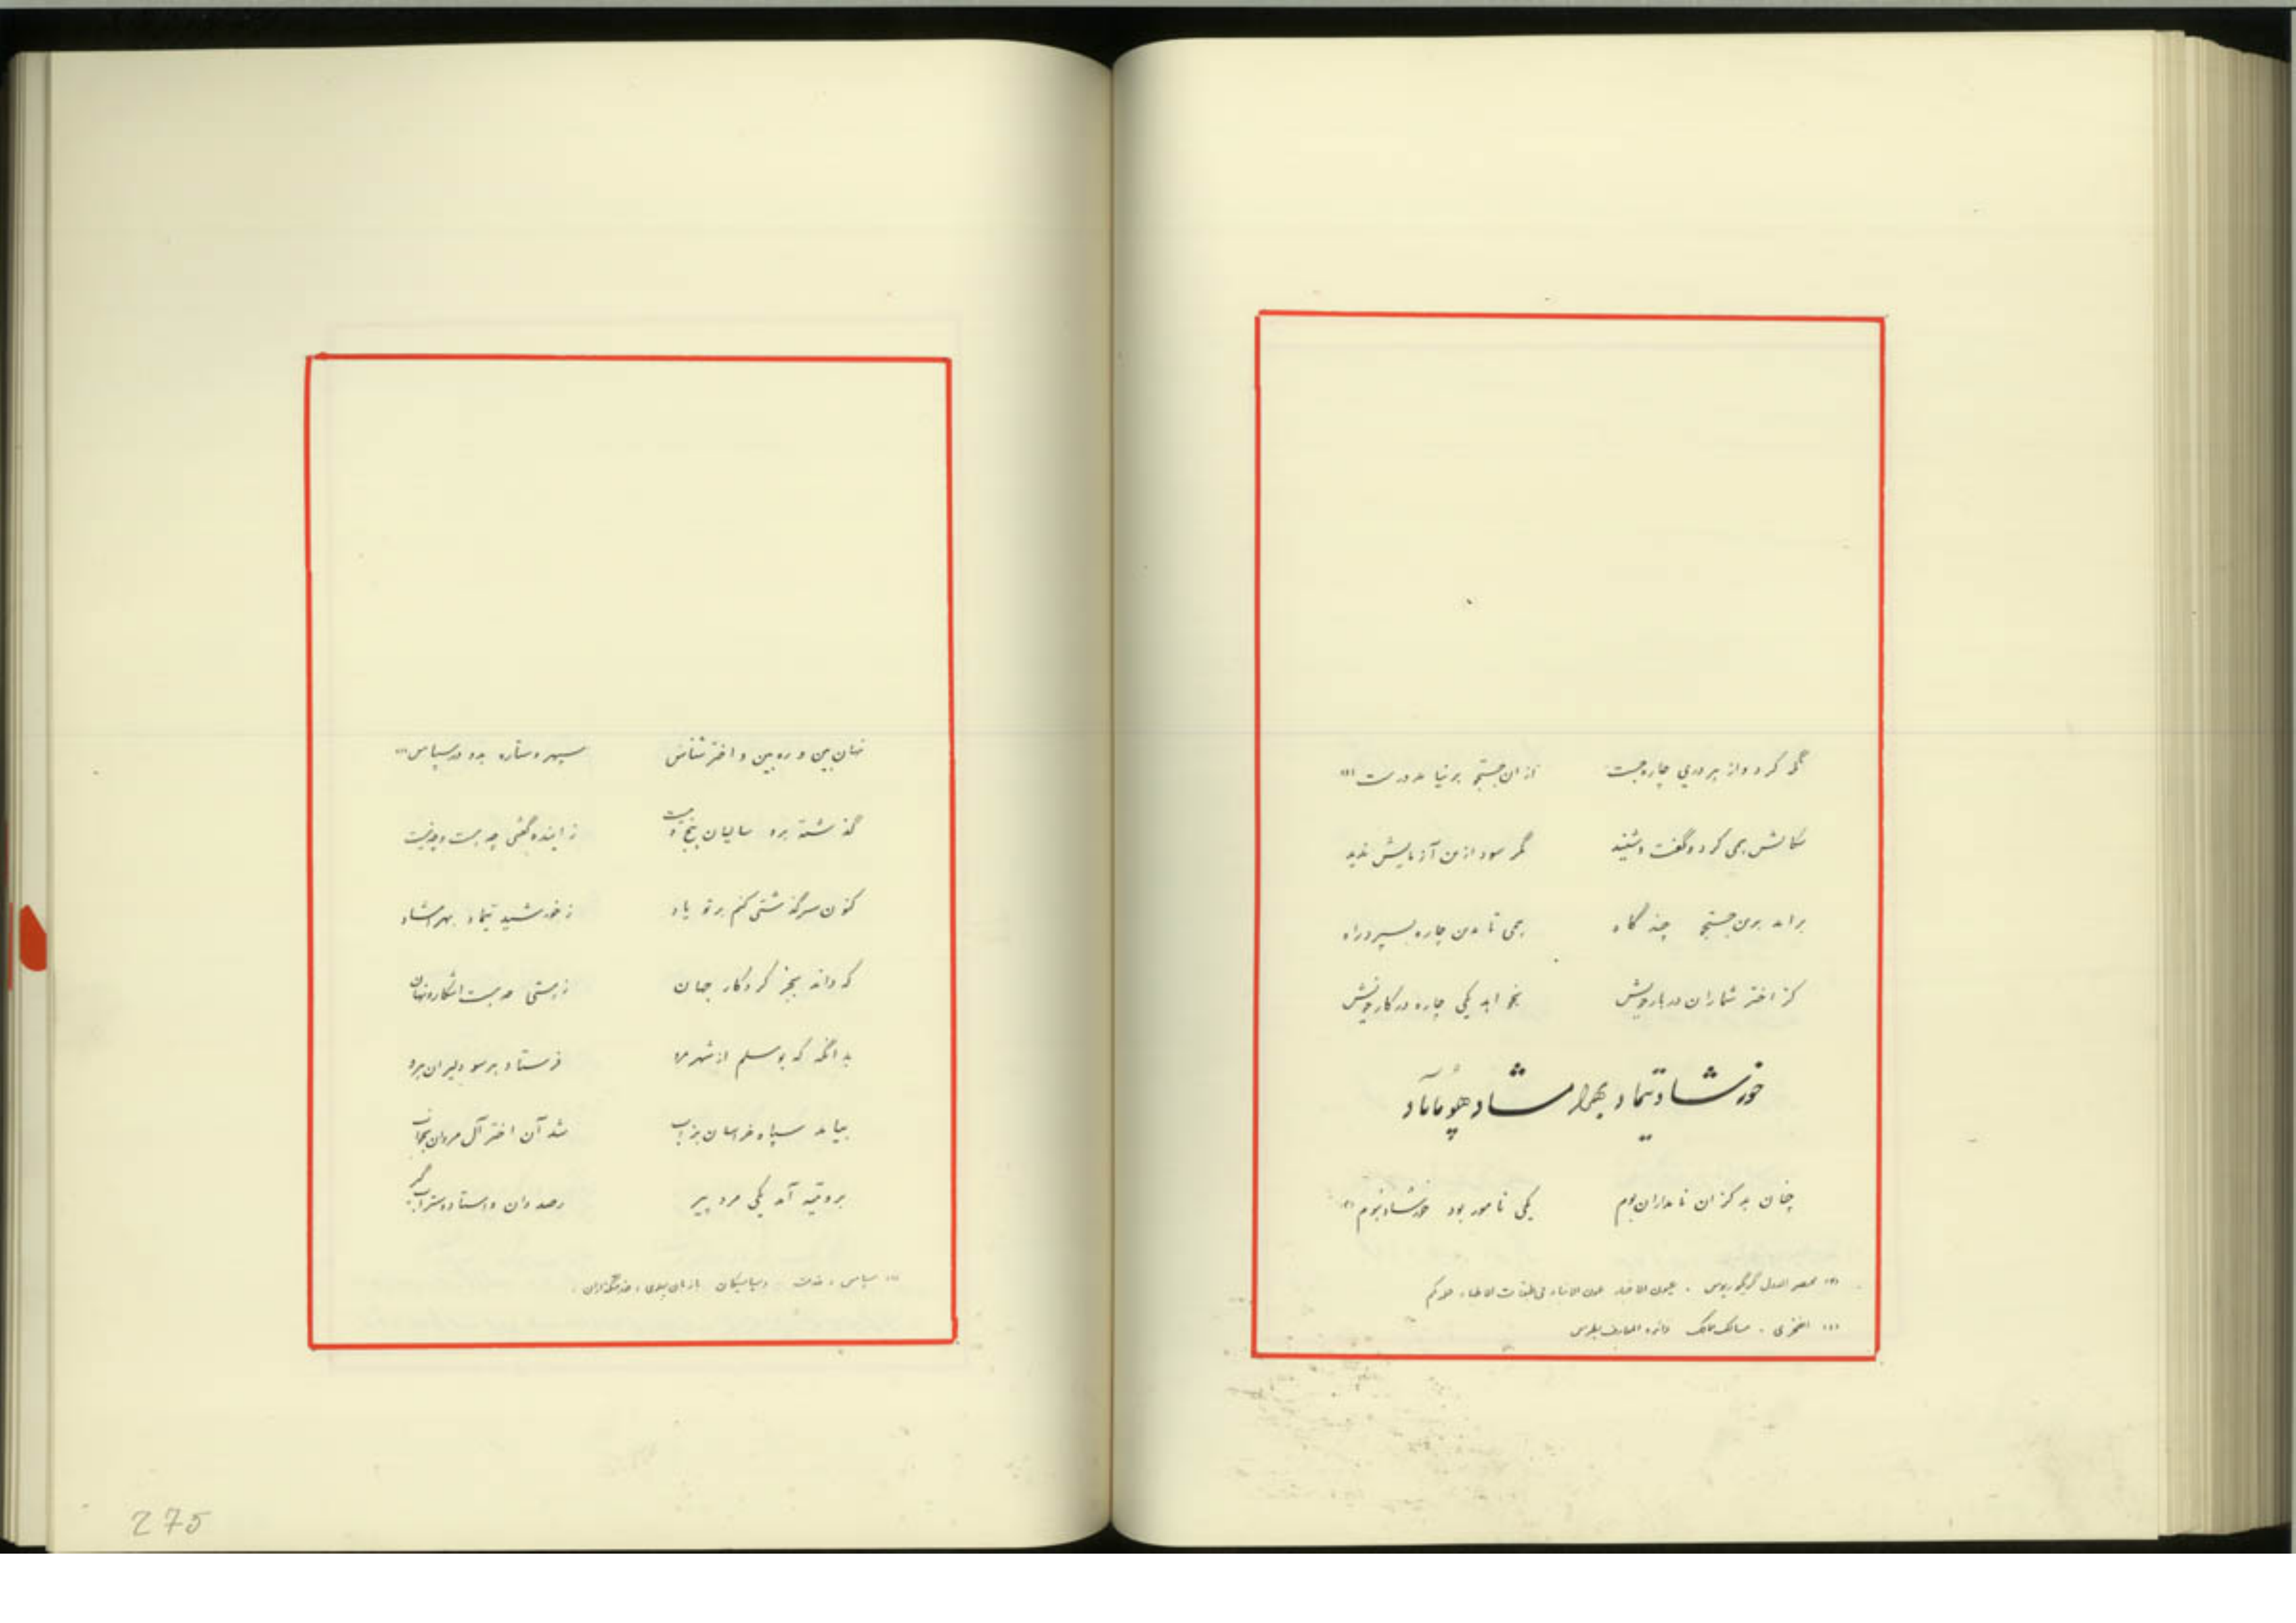 همی کرد و از هر دری چاره جست ازان جستجو برنیامد درست (۱)
سگالش همی کرد و گفت و شنید مگر سود ازین آزمایش ندید
برآمد برین جستجو چند گاه همی تا بدین چاره بسپرد راه
کز اختر شماران دربار خویش بخواهد یکی چاره در کار خویش
خورشاد تیماد بهرامشاد هوپاپاد
چنان بد کزان نامداران بوم یکی نامور بود خورشاد نجوم (۲)
(۲) مختصر الدول گریگوریوس . عیون الاخبار عیون الانباء فی طبقات الاطباء
(۱) اصطخری . مسالک ممالک دائره المعارف
نهان بین و ره بین و اختر شناس سپهر و ستاره بدو در سپاس (۱)
گذشته بره سالیان پنج و بیست ز اینده گفتی چه هست و چه نیست
کنون سرگذشتی کنم بر تو یاد ز خورشید تیماد بهرامشاد
که داند بجز کردگار جهان ز هستی چه هست اشکار و نهان
بدانگه که بومسلم از شهر مرو فرستاد هر سو دلیران
بیامد سپاه خراسان بزاب شد آن اختر آل مروان بخواب
برو تیه آمد یکی مرد پیر رصد دان و استاد و
(۱) سپاس ، خدمت و سپاسیگان بزبان پهلوی ، خدمتگزاران .
275